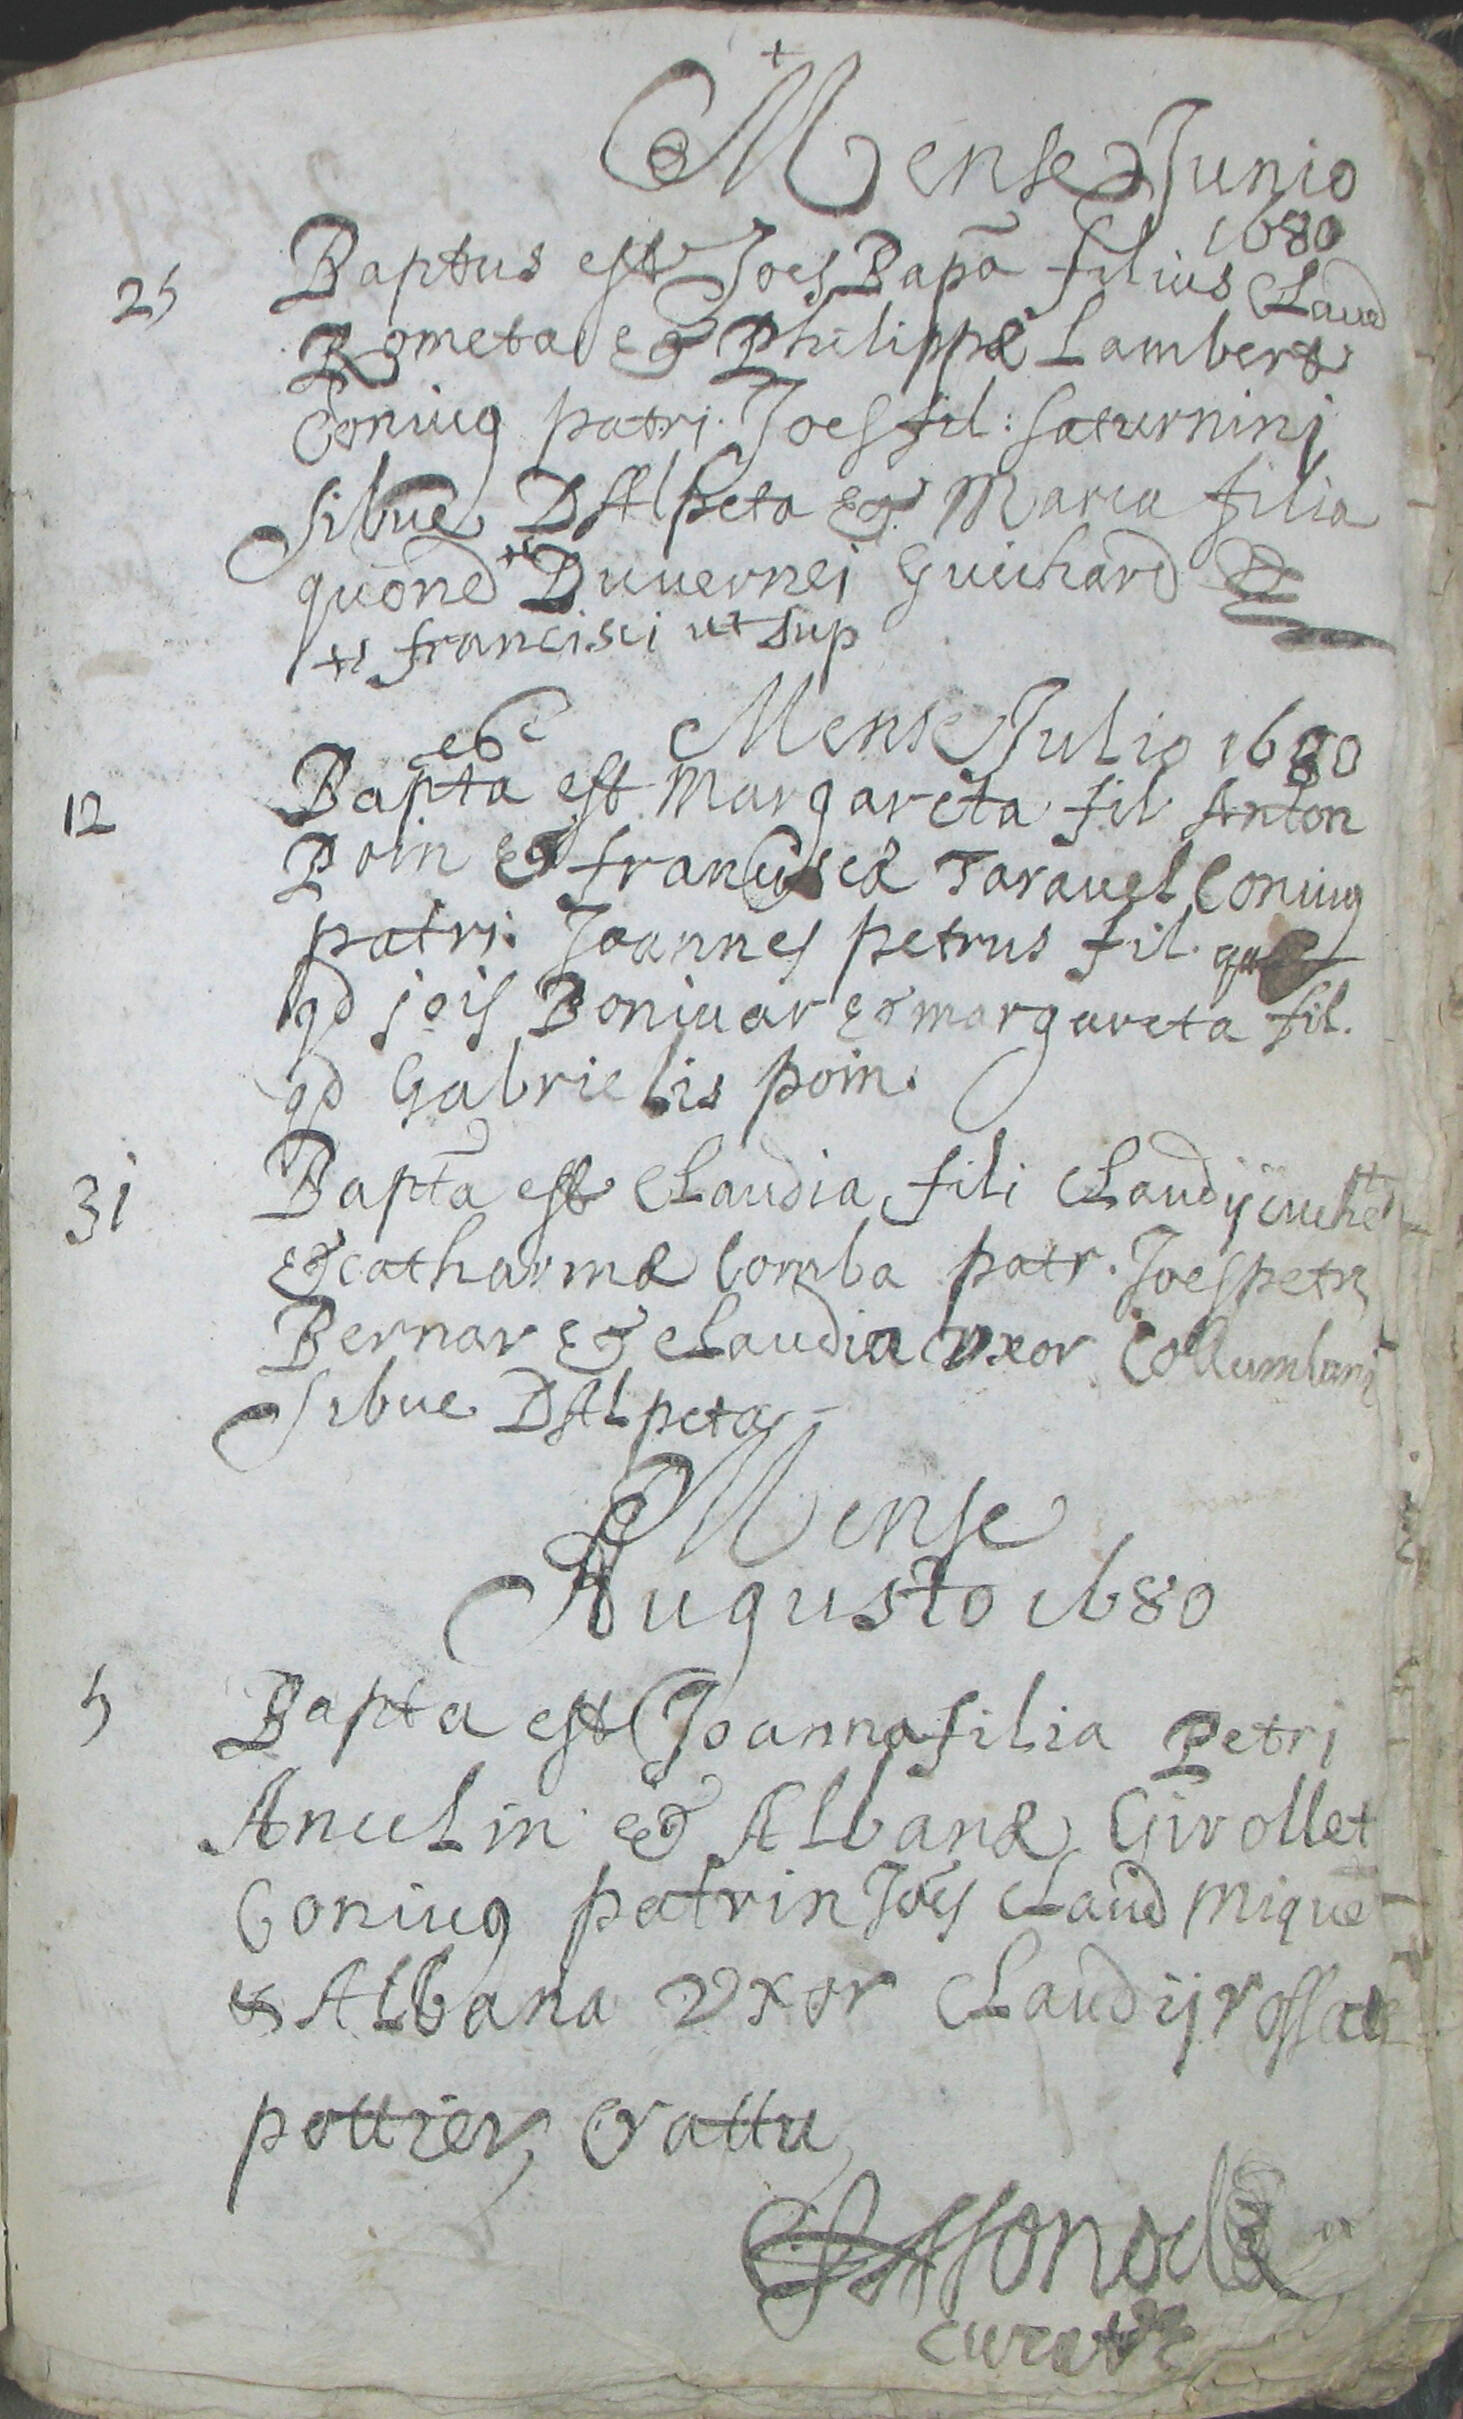 +
Mense Junio
1680
25 Baptus est Joes Bapã filius Claud
Rometa & Philippæ Lambert
Coniug patri. Joes fil: Saturninj
Sibue DAlpeta & Maria filia
quöne Duuernei Guichard
francisci ut sup
Mense Julio 1680
12 Bapta est Margareta fil Anton
Poin & francisca Tarauel Coniug
patri. Joannes petrus fil.
qd jois Boniuar & margareta fil.
qd Gabrielis poin.
31 Bapta est Claudia fili Claudij
& catharinæ Comba patr. Joes petr
Bernar & Claudia vxor Collumbani
Sibue DAlpeta
Mense
Augusto 1680
5 Bapta est Joanna filia Petri
Ancelin & Albanæ Girollet
Coniug patrin Joes Claud Mique
& Albana vxor Claudij
pottier
curatus